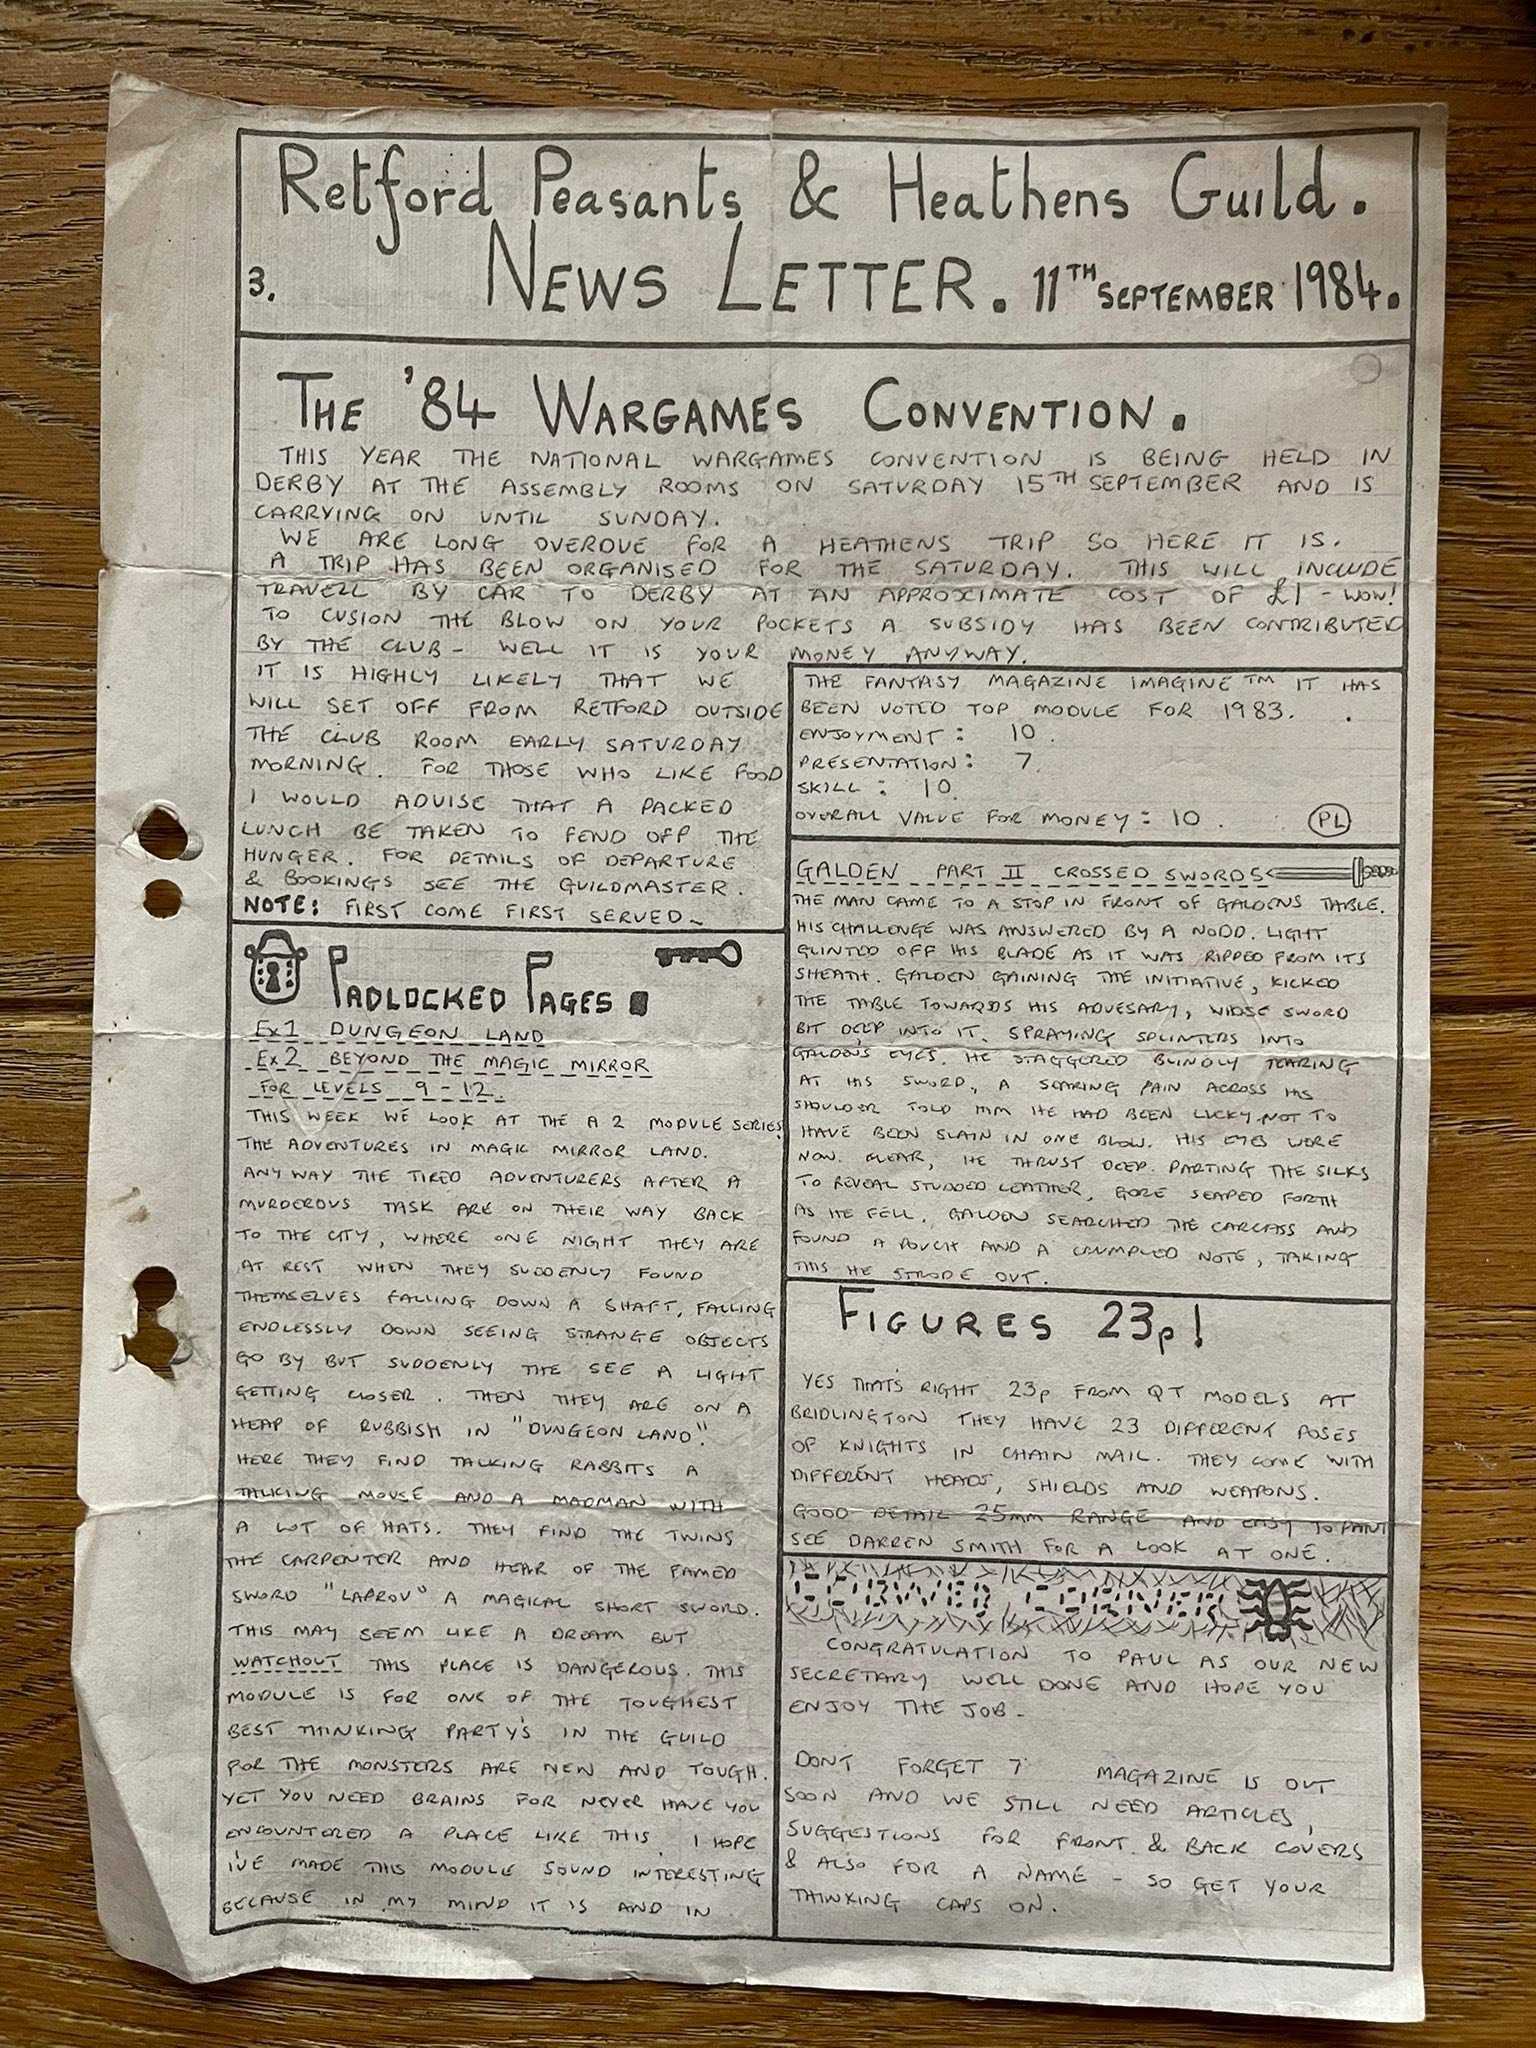 Retford Peasants & Heathens Guild.
3. NEWS LETTER. 11TH SEPTEMBER 1984.
THE '84 WARGAMES CONVENTION.
THIS YEAR THE NATIONAL WARGAMES CONVENTION IS BEING HELD IN
DERBY AT THE ASSEMBLY ROOMS ON SATURDAY 15TH SEPTEMBER AND IS
CARRYING ON UNTIL SUNDAY.
WE ARE LONG OVERDUE FOR A HEATHENS TRIP SO HERE IT IS.
A TRIP HAS BEEN ORGANISED FOR THE SATURDAY. THIS WILL INCLUDE
TRAVELL BY CAR TO DERBY AT AN APPROXIMATE COST OF £1 - WOW!
TO CUSION THE BLOW ON YOUR POCKETS A SUBSIDY HAS BEEN CONTRIBUTED
BY THE CLUB - WELL IT IS YOUR MONEY ANYWAY.
IT IS HIGHLY LIKELY THAT WE
WILL SET OFF FROM RETFORD OUTSIDE
THE CLUB ROOM EARLY SATURDAY
MORNING. FOR THOSE WHO LIKE FOOD
I WOULD ADVISE THAT A PACKED
LUNCH BE TAKEN TO FEND OFF THE
HUNGER. FOR DETAILS OF DEPARTURE
& BOOKINGS SEE THE GUILDMASTER.
NOTE: FIRST COME FIRST SERVED~
PADLOCKED PAGES
Ex1 DUNGEON LAND
Ex2 BEYOND THE MAGIC MIRROR
FOR LEVELS 9 - 12.
THIS WEEK WE LOOK AT THE A 2 MODULE SERIES
THE ADVENTURES IN MAGIC MIRROR LAND.
ANYWAY THE TIRED ADVENTURERS AFTER A
MURDEROUS TASK ARE ON THEIR WAY BACK
TO THE CITY, WHERE ONE NIGHT THEY ARE
AT REST WHEN THEY SUDDENLY FOUND
THEMSELVES FALLING DOWN A SHAFT, FALLING
ENDLESSLY DOWN SEEING STRANGE OBJECTS
GO BY BUT SUDDENLY THE SEE A LIGHT
GETTING CLOSER. THEN THEY ARE ON A
HEAP OF RUBBISH IN "DUNGEON LAND".
HERE THEY FIND TALKING RABBITS A
TALKING MOUSE AND A MADMAN WITH
A LOT OF HATS. THEY FIND THE TWINS
THE CARPENTER AND HEAR OF THE FAMED
SWORD "LAPROV" A MAGICAL SHORT SWORD.
THIS MAY SEEM LIKE A DREAM BUT
WATCHOUT THIS PLACE IS DANGEROUS. THIS
MODULE IS FOR ONE OF THE TOUGHEST
BEST THINKING PARTY'S IN THE GUILD
FOR THE MONSTERS ARE NEW AND TOUGH.
YET YOU NEED BRAINS FOR NEVER HAVE YOU
ENCOUNTERED A PLACE LIKE THIS. I HOPE
I'VE MADE THIS MODULE SOUND INTERESTING
BECAUSE IN MY MIND IT IS AND IN
THE FANTASY MAGAZINE IMAGINE TM IT HAS
BEEN VOTED TOP MODULE FOR 1983.
ENJOYMENT: 10.
PRESENTATION: 7.
SKILL: 10.
OVERALL VALUE FOR MONEY: 10. PL
GALDEN PART II CROSSED SWORDS
THE MAN CAME TO A STOP IN FRONT OF GALDENS TABLE.
HIS CHALLENGE WAS ANSWERED BY A NODD. LIGHT
GLINTED OFF HIS BLADE AS IT WAS RIPPED FROM ITS
SHEATH. GALDEN GAINING THE INITIATIVE, KICKED
THE TABLE TOWARDS HIS ADVESARY, WHOSE SWORD
BIT DEEP INTO IT. SPRAYING SPLINTERS INTO
GALDENS EYES. HE STAGGERED BLINDLY TEARING
AT HIS SWORD, A SEARING PAIN ACROSS HIS
SHOULDER TOLD HIM HE HAD BEEN LUCKY NOT TO
HAVE BEEN SLAIN IN ONE BLOW. HIS EYES WERE
NOW CLEAR, HE THRUST DEEP. PARTING THE SILKS
TO REVEAL STUDDED LEATHER, GORE SEAPED FORTH
AS HE FELL. GALDEN SEARCHED THE CARCASS AND
FOUND A POUCH AND A CRUMPLED NOTE, TAKING
THIS HE STRODE OUT.
FIGURES 23p!
YES THATS RIGHT 23p FROM QT MODELS AT
BRIDLINGTON THEY HAVE 23 DIFFERENT POSES
OF KNIGHTS IN CHAIN MAIL. THEY COME WITH
DIFFERENT HEADS, SHIELDS AND WEAPONS.
GOOD DETAIL 25mm RANGE AND EASY TO PAINT
SEE DARREN SMITH FOR A LOOK AT ONE.
CORNER
CONGRATULATION TO PAUL AS OUR NEW
SECRETARY WELL DONE AND HOPE YOU
ENJOY THE JOB.
DONT FORGET ? MAGAZINE IS OUT
SOON AND WE STILL NEED ARTICLES,
SUGGESTIONS FOR FRONT & BACK COVERS
& ALSO FOR A NAME - SO GET YOUR
THINKING CAPS ON.